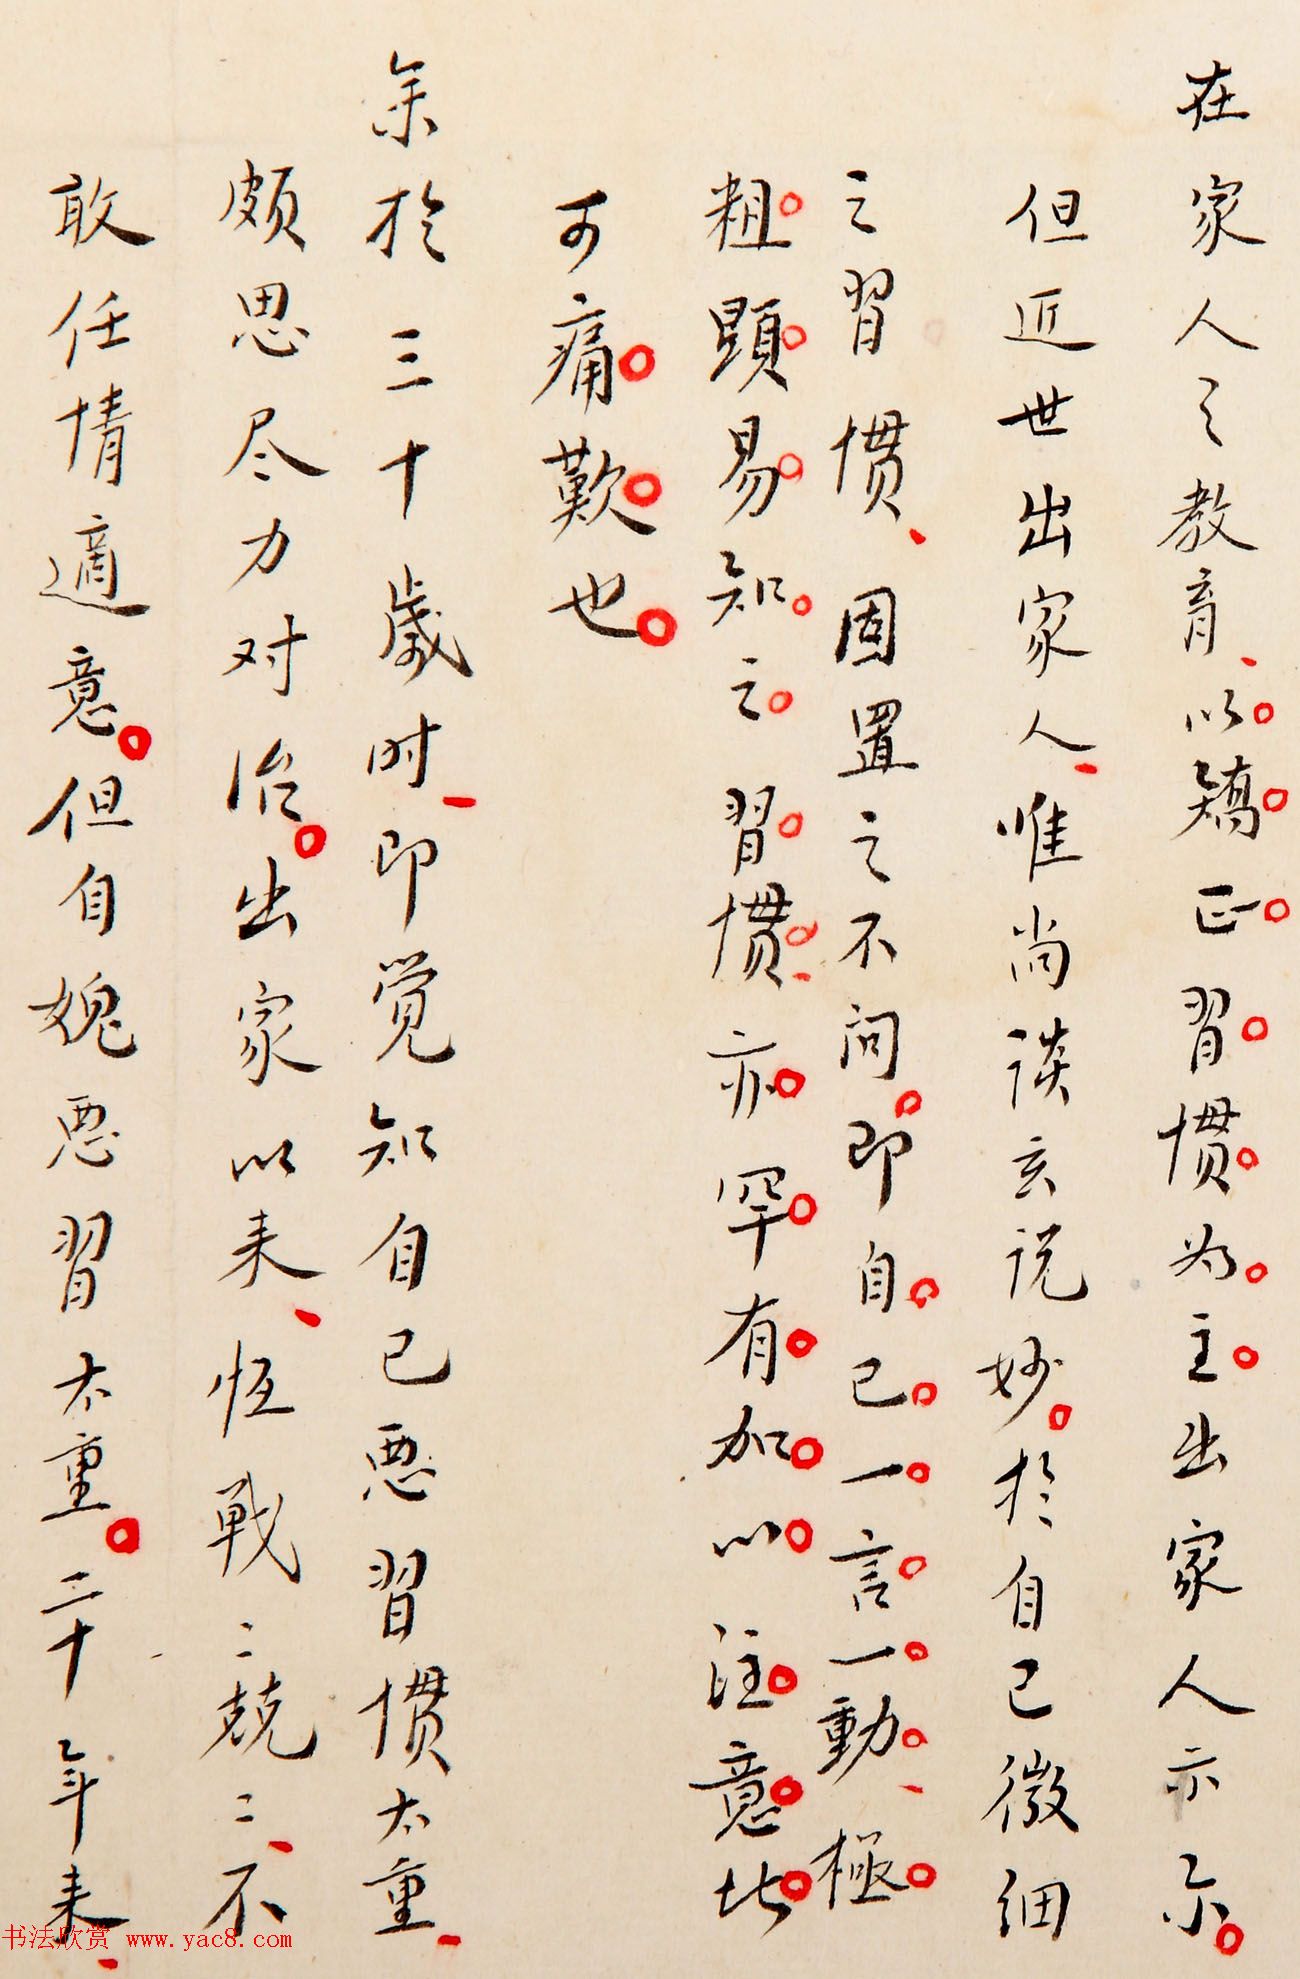 在家人之教育、以矯正習惯为主。出家人亦尔。
但近世出家人、唯尚谈玄说妙。於自己微细
之習惯、固置之不问。即自己一言一動、極
粗顕易知之習惯、亦罕有加以注意。此
可痛歎也。
余於三十歲时、即觉知自己恶習惯太重、
颇思尽力对治。出家以来、恆戰〻兢〻、不
敢任情適意。但自媿恶習太重。二十年来、
书法欣赏 www.yac8.com